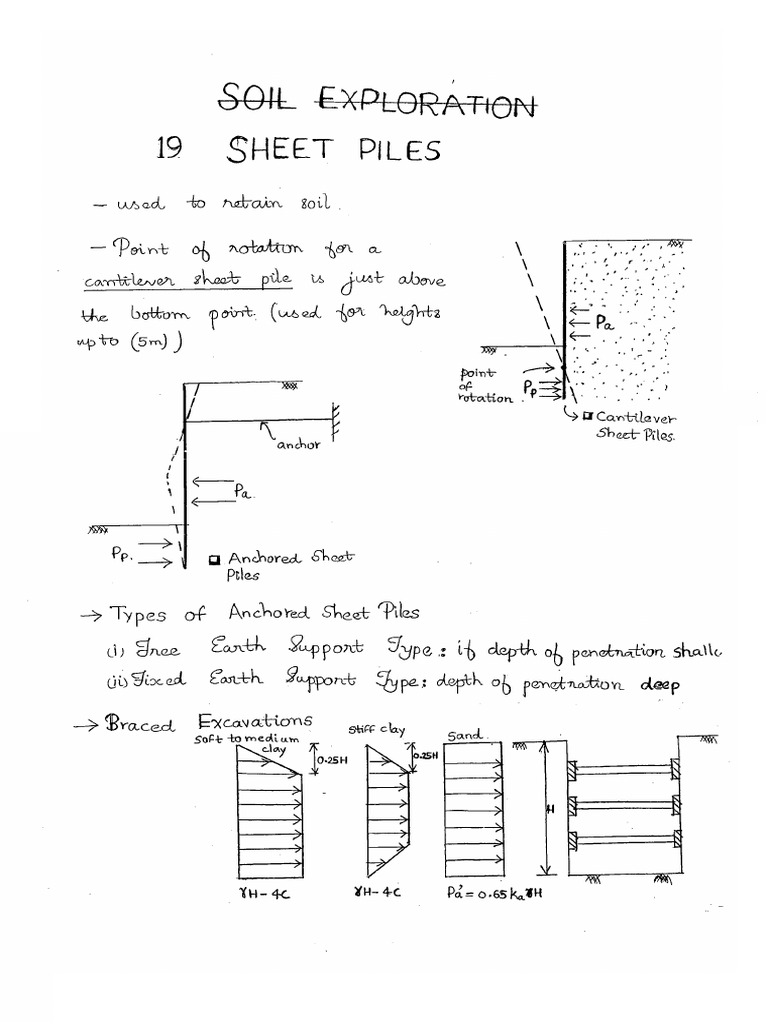 SOIL EXPLORATION
19 SHEET PILES
- used to retain soil.
- Point of rotation for a
cantilever sheet pile is just above
the bottom point. (used for heights
upto (5m))
Pa
point
of
rotation
Pp
Cantilever
Sheet Piles.
anchor
Pa.
Pp.
Anchored Sheet
Piles
→ Types of Anchored Sheet Piles
(i) Free Earth Support Type: if depth of penetration shallo
(ii) Fixed Earth Support Type: depth of penetration deep
→ Braced Excavations
Soft to medium
clay
0.25H
Stiff clay
0.25H
Sand.
H
γH-4C
γH-4C
Pá = 0.65 ka γH